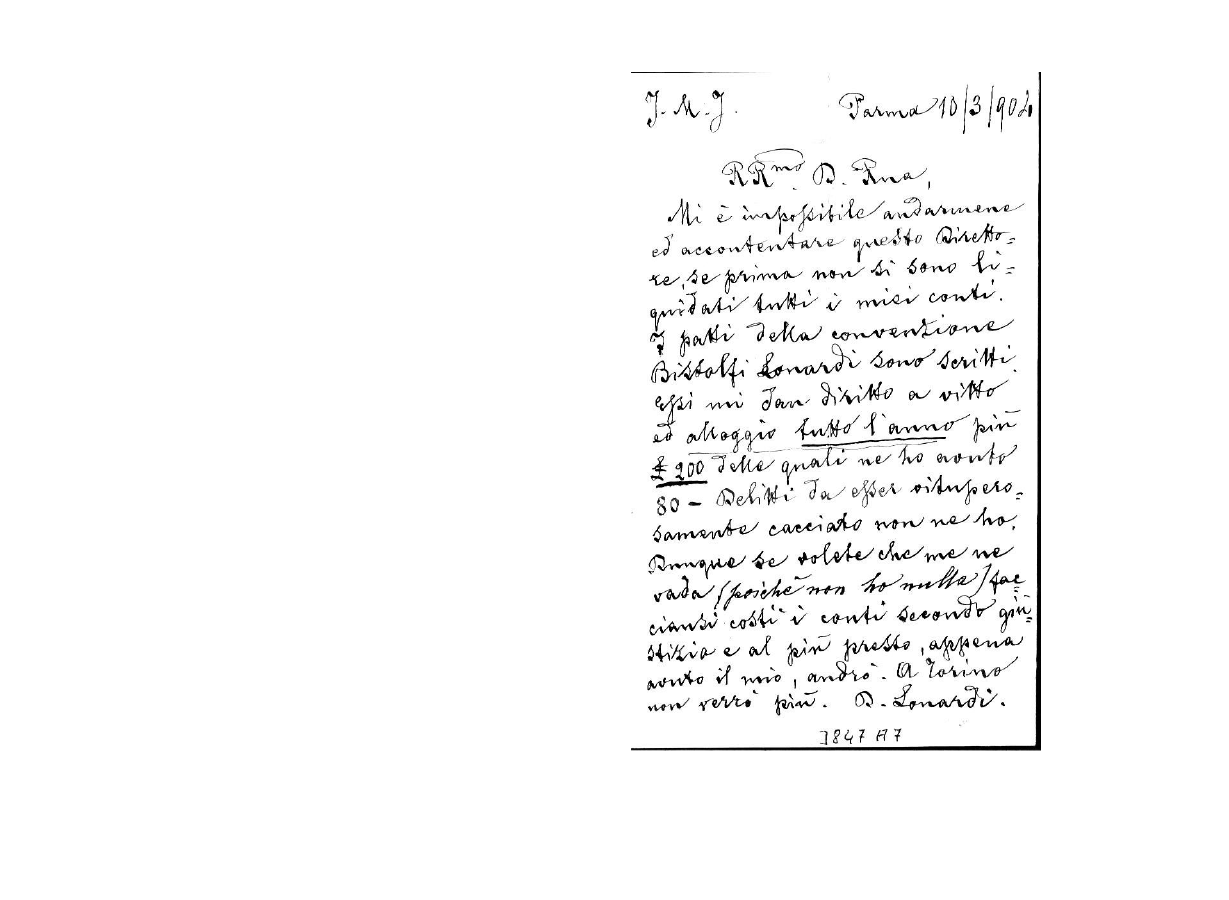 J. M. J. Parma 10/3/904
RR.mo D. Rua,
Mi è impossibile andarmene
ed accontentare questo Diretto=
re, se prima non si sono li=
quidati tutti i miei conti.
I patti della convenzione
Bistolfi Lonardi sono scritti.
Essi mi dan diritto a vitto
ed alloggio tutto l'anno più
£ 200 delle quali ne ho avuto
80 – Delitti da esser vitupero=
samente cacciato non ne ho.
Dunque se volete che me ne
vada (poichè non ho nulla) fac
ciansi costì i conti secondo giu=
stizia e al più presto, appena
avuto il mio, andrò. A Torino
non verrò più. D. Lonardi.
3847 A7